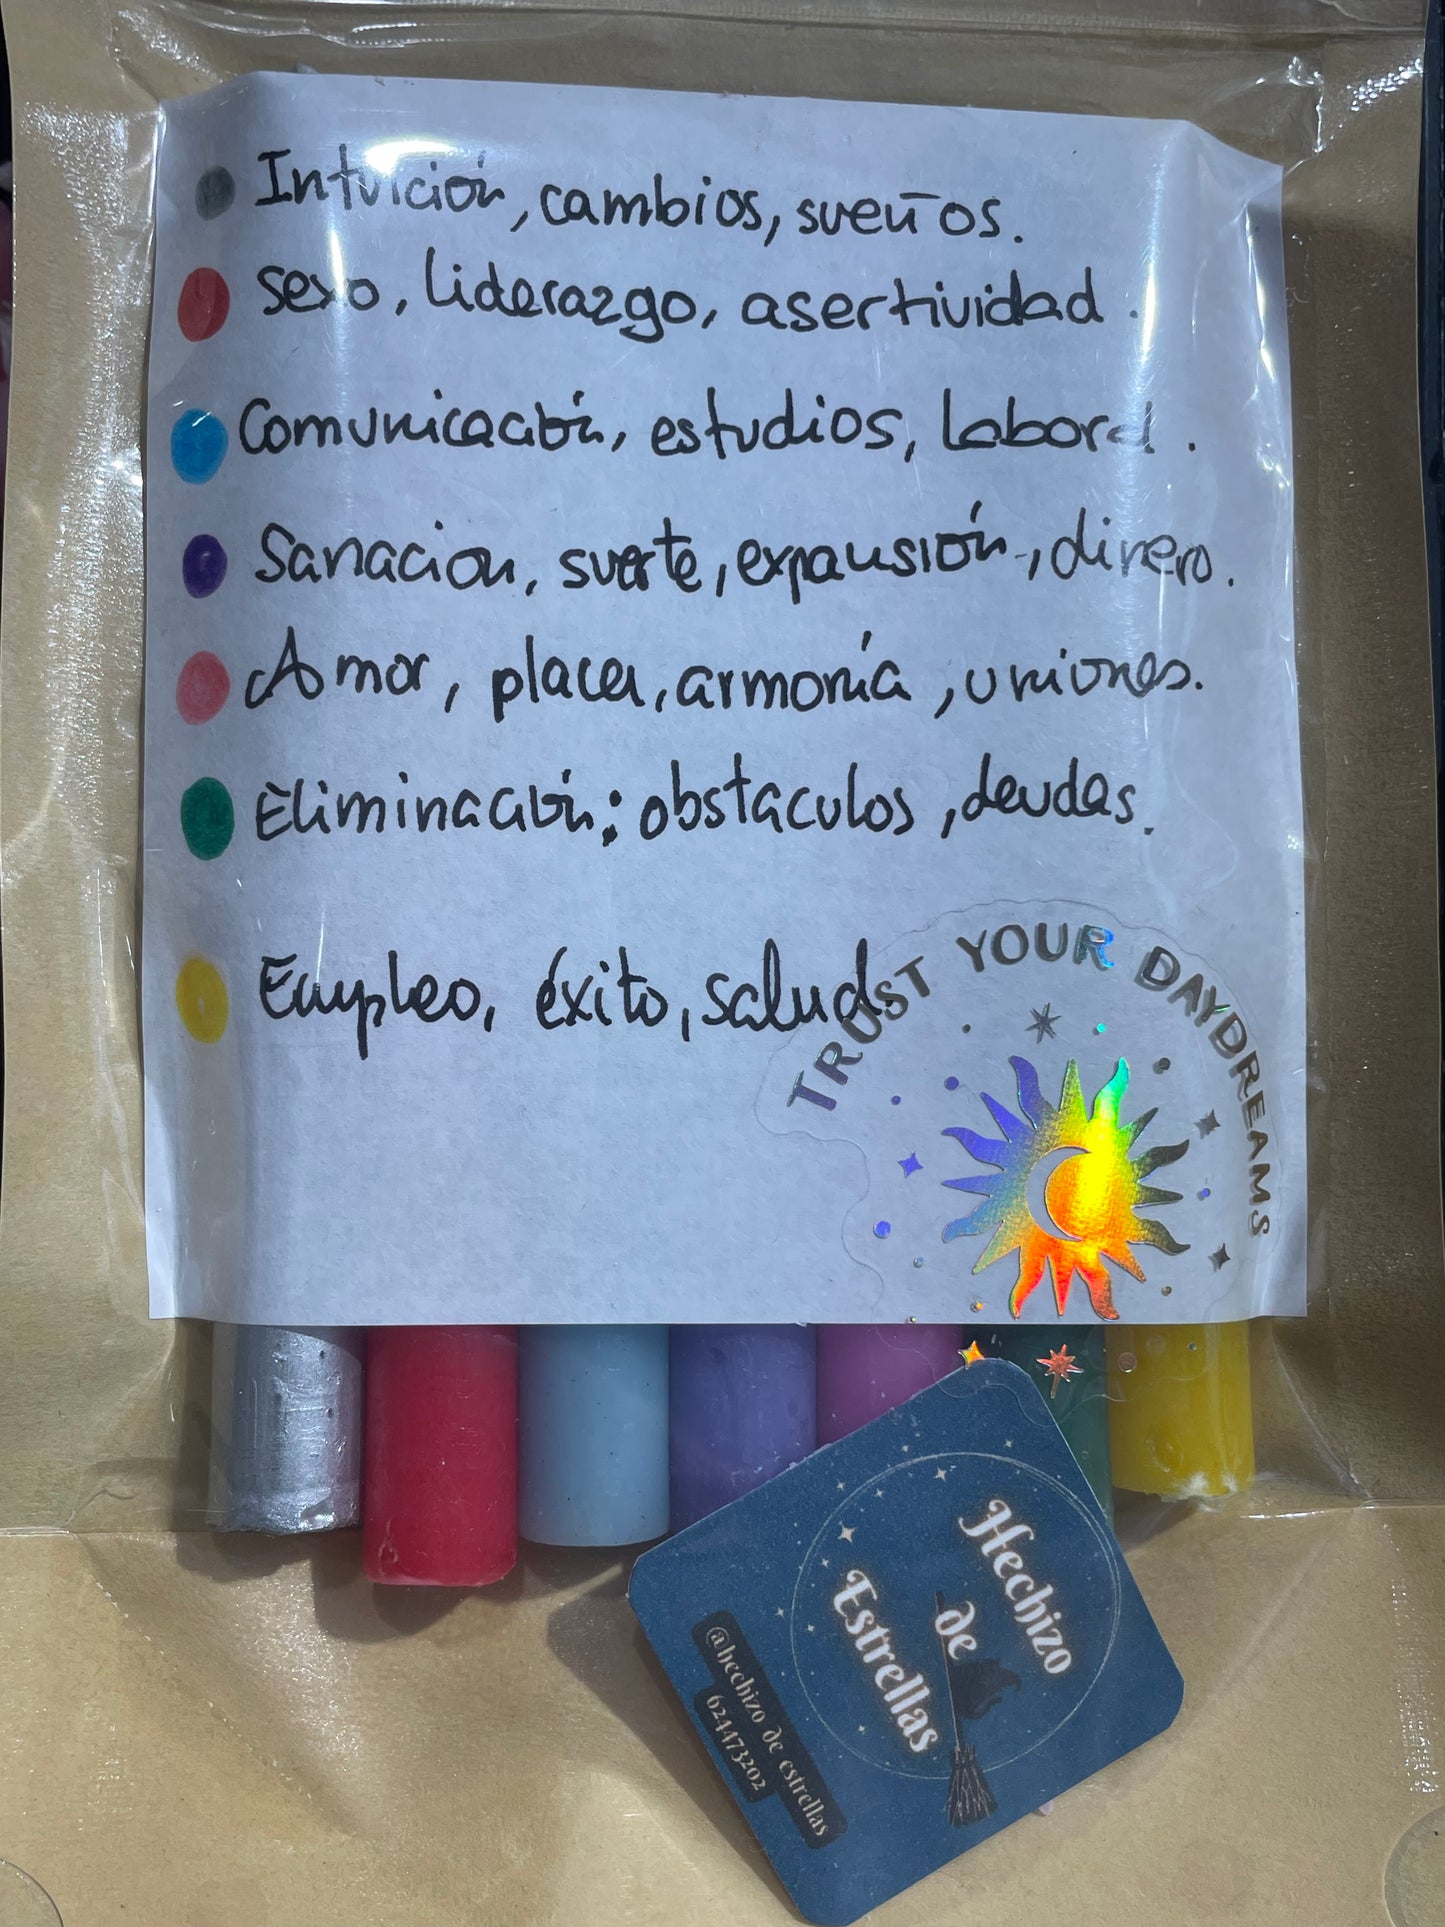 Intuición, cambios, sueños.
sexo, liderazgo, asertividad.
Comunicación, estudios, laboral.
Sanacion, suerte, expansión, dinero.
Amor, placer, armonía, uniones.
Eliminación: obstaculos, deudas.
Empleo, éxito, salud
TRUST YOUR DAYDREAMS
Hechizo
de
Estrellas
@hechizo de estrellas
624473202